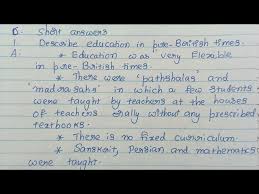 Q: Short answers
1. Describe education in pre-British times.
A: * Education was very flexible
in pre-British times.
* There were 'pathshalas' and
'madrasahs' in which a few students
were taught by teachers at the houses
of teachers orally without any prescribed
textbooks.
* There is no fixed curriculum.
* Sanskrit, Persian and mathematics
were taught.